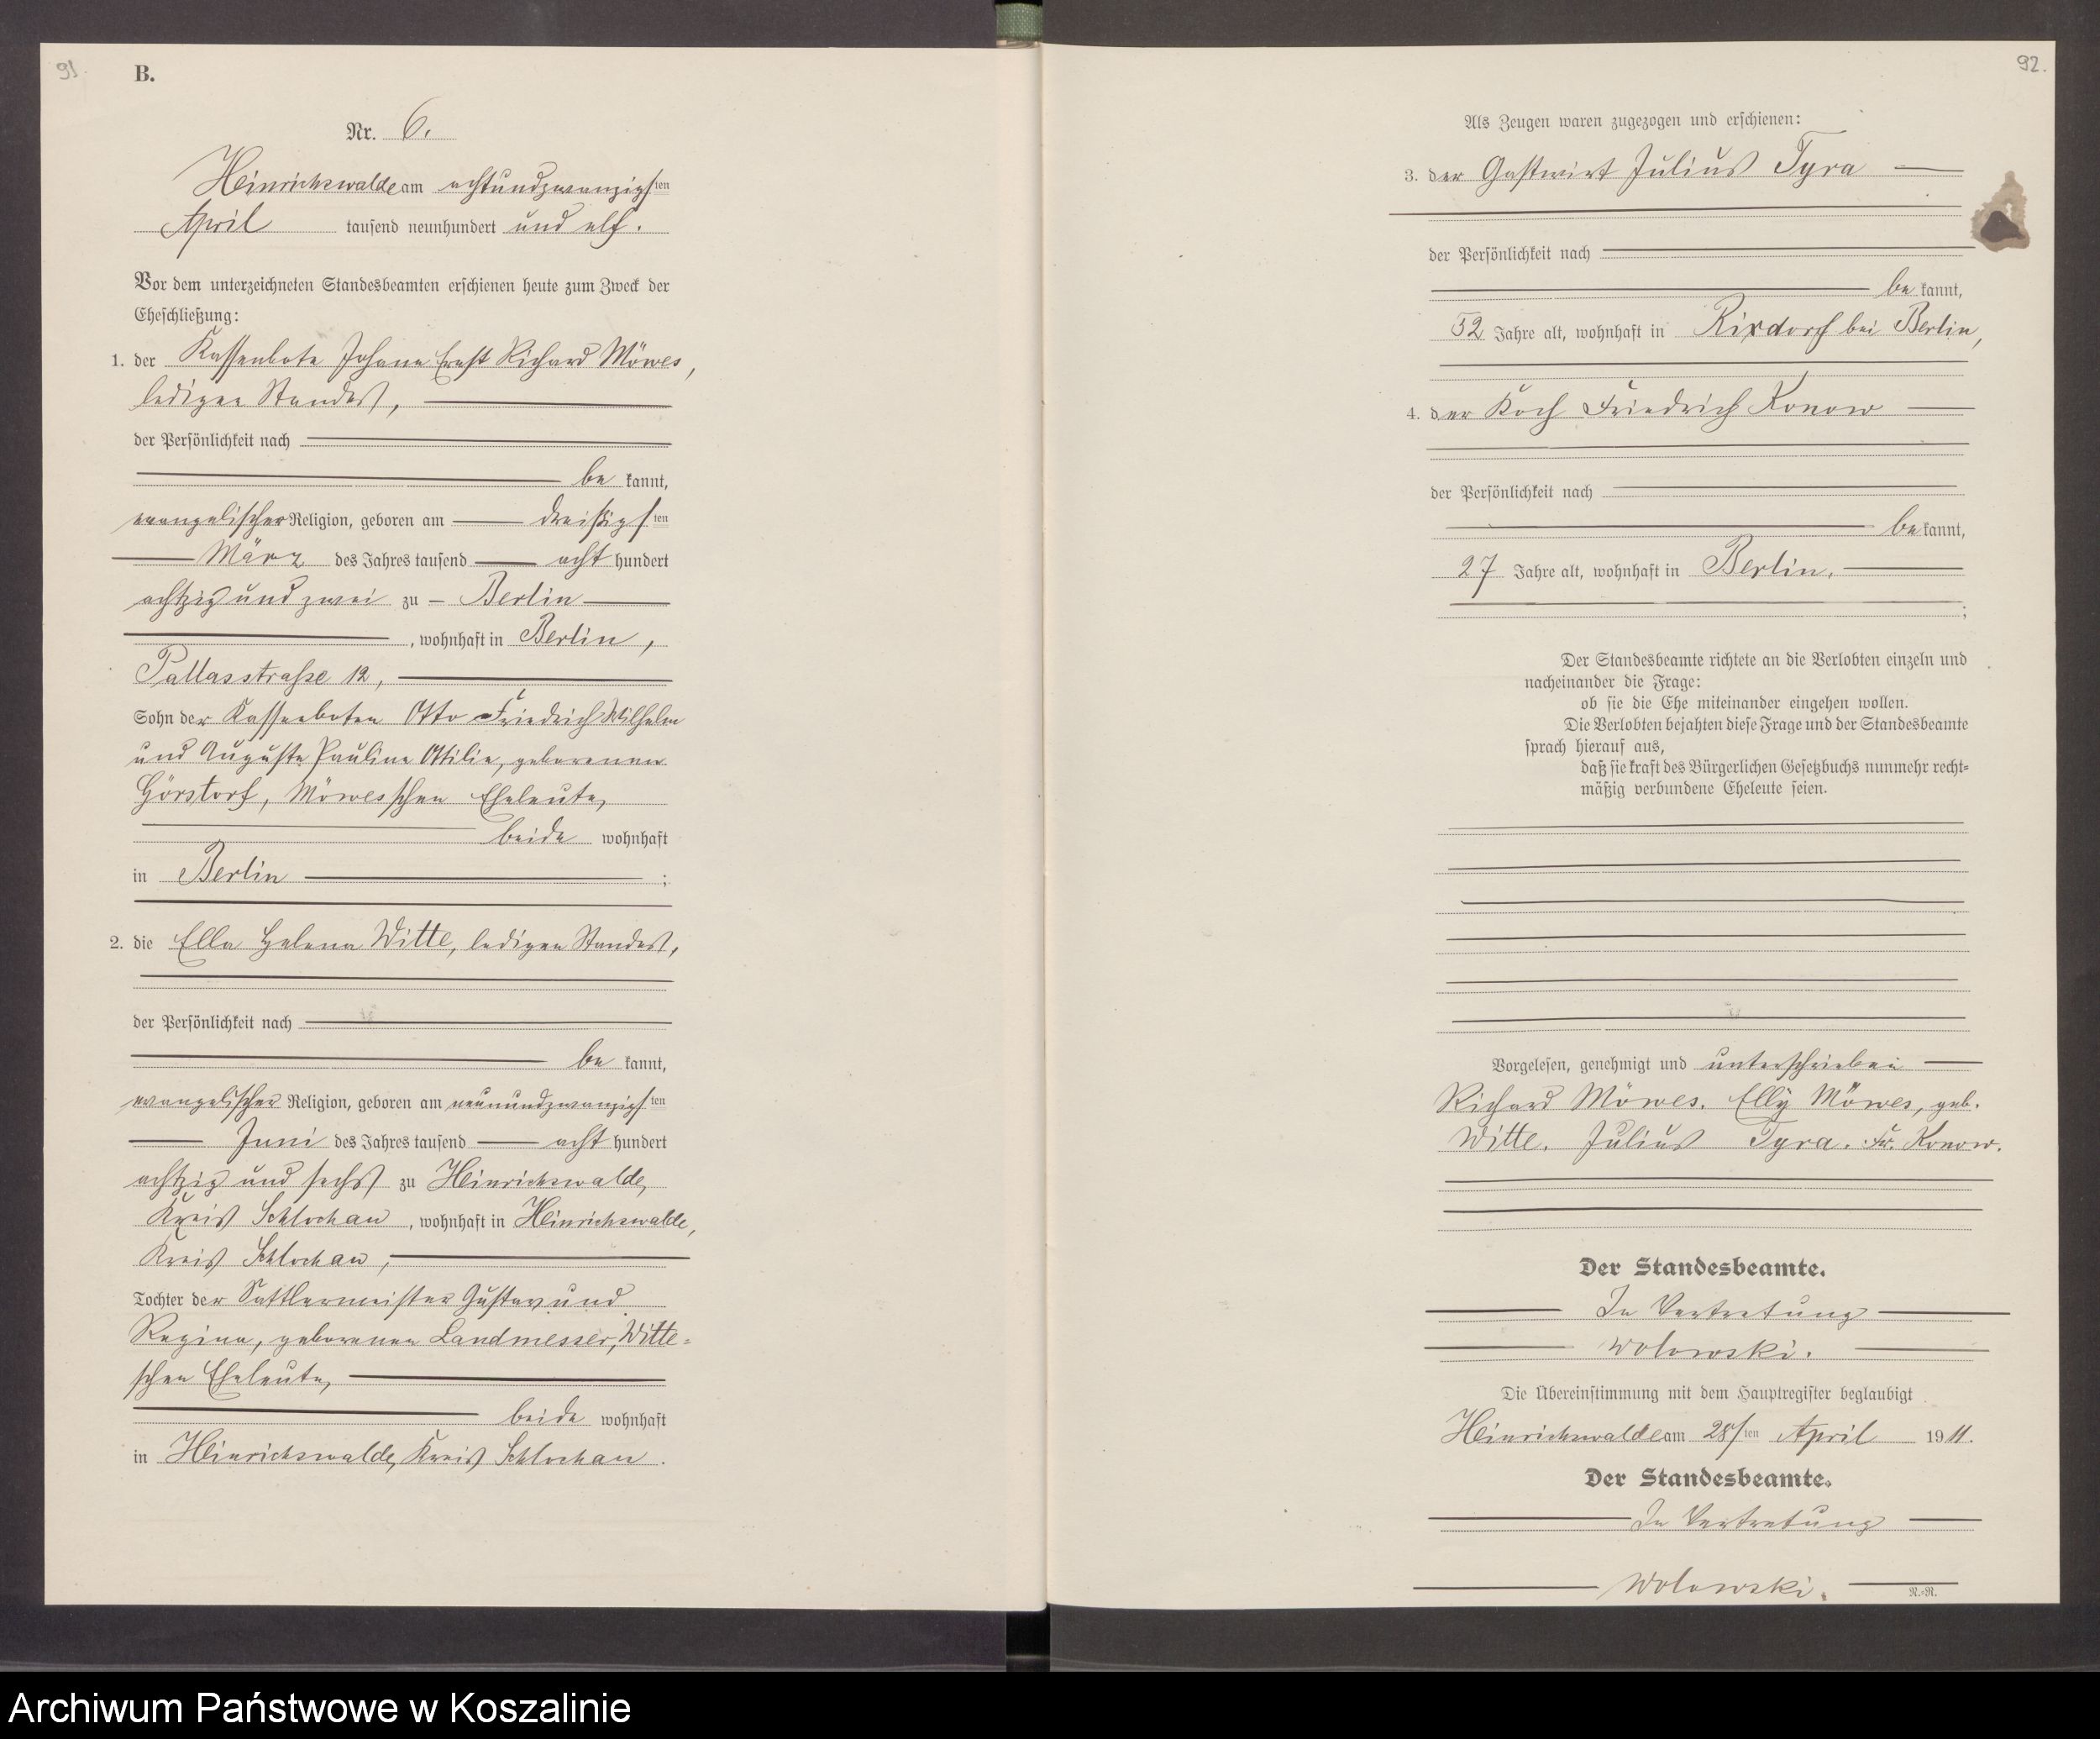 91.
B.
Nr. 6.
Heinrichswalde am achtundzwanzigsten
April tausend neunhundert und elf.
Vor dem unterzeichneten Standesbeamten erschienen heute zum Zweck der
Eheschließung:
1. der Kassenbote Johann Ernst Richard Möwes,
ledigen Standes,
der Persönlichkeit nach
be kannt,
evangelischer Religion, geboren am dreißigsten
März des Jahres tausend acht hundert
achtzig und zwei zu Berlin
, wohnhaft in Berlin,
Pallasstraße 12,
Sohn der Kassenboten Otto Friedrich Wilhelm
und Auguste Pauline Ottilie, geborenen
Görstorf, Möwesschen Eheleute,
beide wohnhaft
in Berlin ;
2. die Ella Helena Witte, ledigen Standes,
der Persönlichkeit nach
be kannt,
evangelischer Religion, geboren am neunundzwanzigsten
Juni des Jahres tausend acht hundert
achtzig und sechs zu Heinrichswalde,
Kreis Schlochau, wohnhaft in Heinrichswalde,
Kreis Schlochau,
Tochter der Sattlermeister Gustav und
Regina, geborenen Landmesser, Witte-
schen Eheleute,
beide wohnhaft
in Heinrichswalde, Kreis Schlochau.
92.
Als Zeugen waren zugezogen und erschienen:
3. der Gastwirt Julius Tyra
der Persönlichkeit nach
be kannt,
52 Jahre alt, wohnhaft in Rixdorf bei Berlin,
4. der Koch Friedrich Konow
der Persönlichkeit nach
be kannt,
27 Jahre alt, wohnhaft in Berlin.
;
Der Standesbeamte richtete an die Verlobten einzeln und
nacheinander die Frage:
ob sie die Ehe miteinander eingehen wollen.
Die Verlobten bejahten diese Frage und der Standesbeamte
sprach hierauf aus,
daß sie kraft des Bürgerlichen Gesetzbuchs nunmehr recht-
mäßig verbundene Eheleute seien.
Vorgelesen, genehmigt und unterschrieben
Richard Möwes. Elly Möwes, geb.
Witte. Julius Tyra. Fr. Konow.
Der Standesbeamte.
In Vertretung
Wolowski.
Die Übereinstimmung mit dem Hauptregister beglaubigt
Heinrichswalde am 28ten April 1911.
Der Standesbeamte.
In Vertretung
Wolowski.
N.-N.
Archiwum Państwowe w Koszalinie